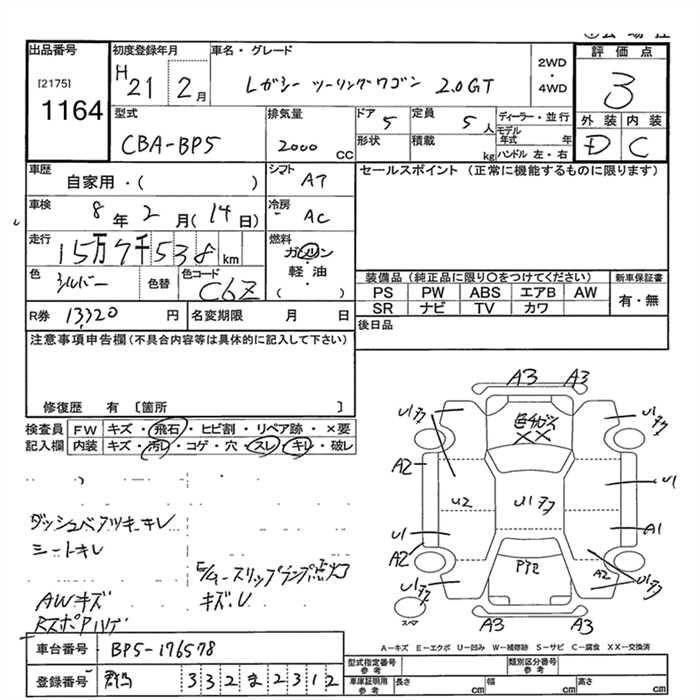 出品番号 初度登録年月 車名・グレード 評価点
[2175]
1164
H21 2月
レガシー ツーリングワゴン 2.0GT
2WD
・
4WD
3
外装 内装
D C
型式
CBA-BP5
排気量
2000 cc
ドア
5
定員
5人
形状 積載 kg
ディーラー・並行
モデル年式 年
ハンドル 左・右
車歴
自家用・( )
シフト AT
セールスポイント (正常に機能するものに限ります)
車検 8年2月(14日)
冷房 AC
走行 15万7千538km
燃料
ガソリン
・
軽油
( )
色 シルバー 色替 色コード C6Z
装備品(純正品に限り○をつけてください) 新車保証書
PS PW ABS エアB AW
SR ナビ TV カワ
有・無
R券 13,320円 名変期限 月 日
後日品
注意事項申告欄(不具合内容等は具体的に記入して下さい)
修復歴 有 〔箇所 〕
検査員 FW キズ・飛石・ヒビ割・リペア跡・×要
記入欄 内装 キズ・汚レ・コゲ・穴・スレ・キレ・破レ
ダッシュ
シートキレ
AWキズ
キズU
A3 A3
XX
A2
U2
U1
U1
U1
A1
A2
A2
A3 A3
スペア
A-キズ E-エクボ U-凹み W-補修跡 S-サビ C-腐食 XX-交換済
車台番号 BP5-176578
登録番号 332ま2312
型式指定番号 参考 類別区分番号 参考
車庫証明用 参考 長さ cm 幅 cm 高さ cm